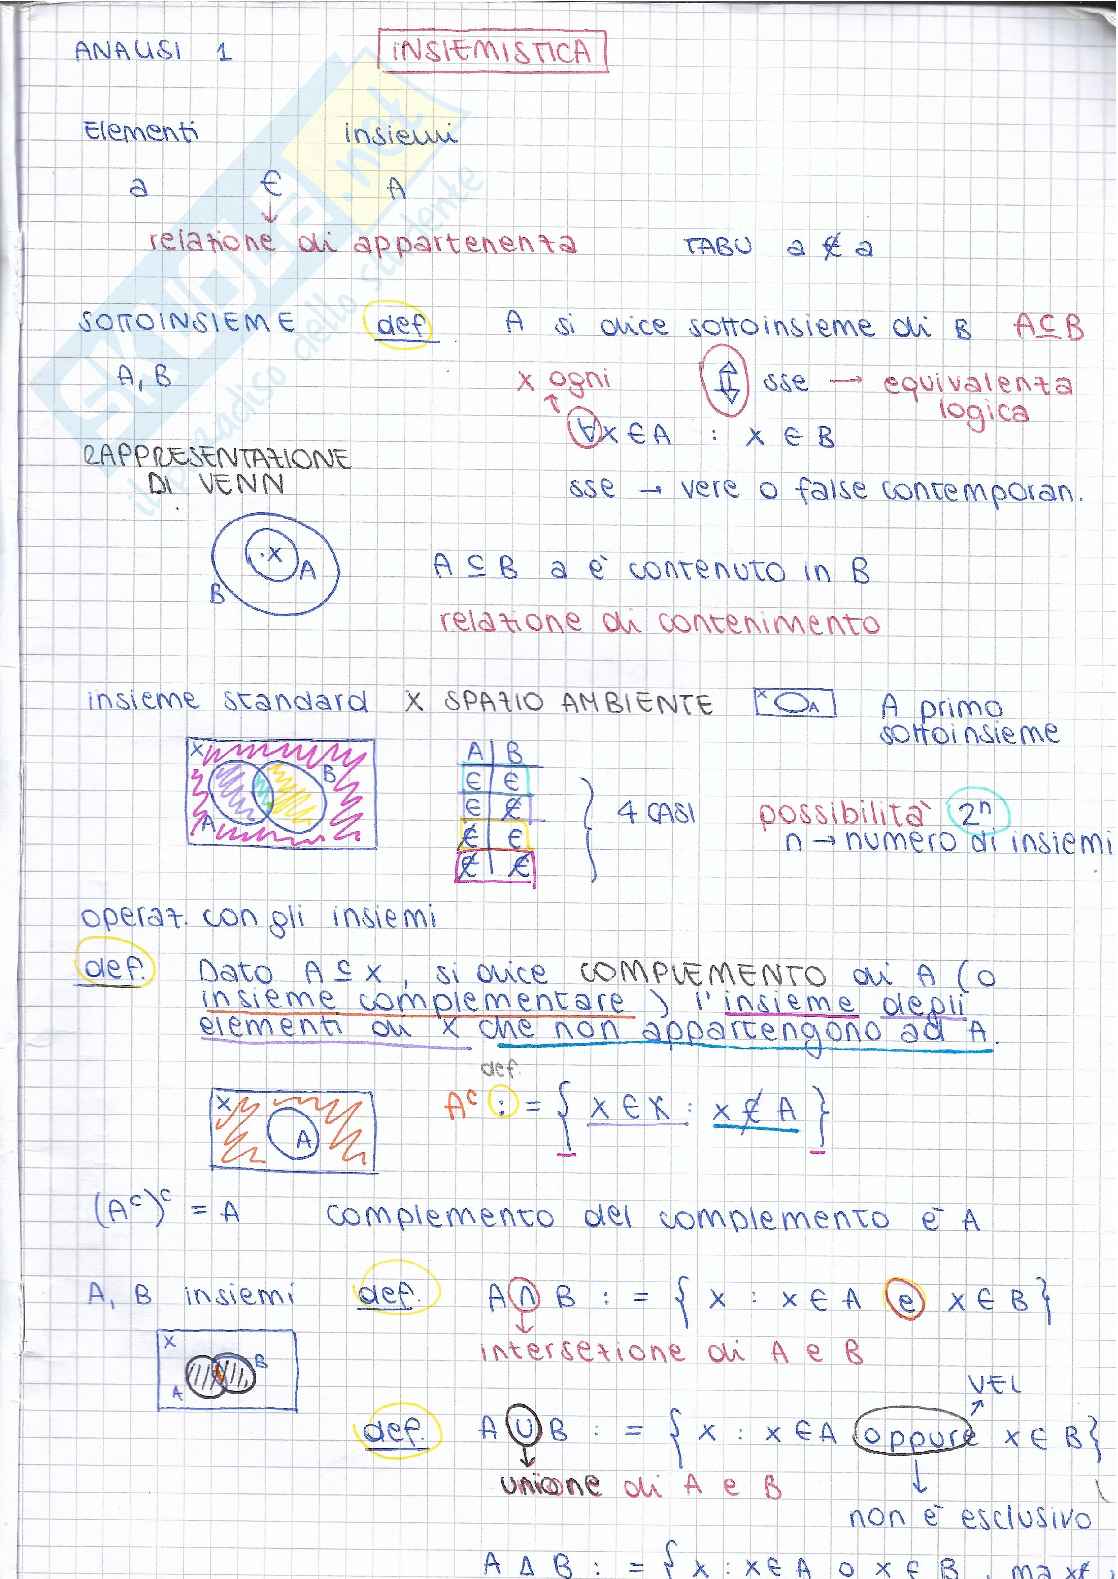 ANALISI 1 INSIEMISTICA
Elementi insiemi
a ∈ A
relazione di appartenenza TABU a ∉ a
SOTTOINSIEME def A si dice sottoinsieme di B A⊆B
A, B x ogni ⇕ sse → equivalenza
logica
∀x∈A : x ∈ B
RAPPRESENTAZIONE
DI VENN sse → vere o false contemporan.
·x A
B A ⊆ B a è contenuto in B
relazione di contenimento
insieme standard X SPAZIO AMBIENTE X A A primo
sottoinsieme
X A B
A | B
∈ | ∈
∈ | ∉ 4 CASI possibilità 2ⁿ
∉ | ∈ n → numero di insiemi
∉ | ∉
operaz. con gli insiemi
def. Dato A ⊆ X, si dice COMPLEMENTO di A (o
insieme complementare) l'insieme degli
elementi di X che non appartengono ad A.
def.
X A Aᶜ := { x ∈ X : x ∉ A }
(Aᶜ)ᶜ = A complemento del complemento è A
A, B insiemi def. A ∩ B := { x : x ∈ A e x ∈ B}
intersezione di A e B
X A B
VEL
def. A ∪ B := { x : x ∈ A oppure x ∈ B}
unione di A e B
non è esclusivo
A Δ B := { x : x ∈ A o x ∈ B, ma x∉
SKUOLA.net
il paradiso dello studente